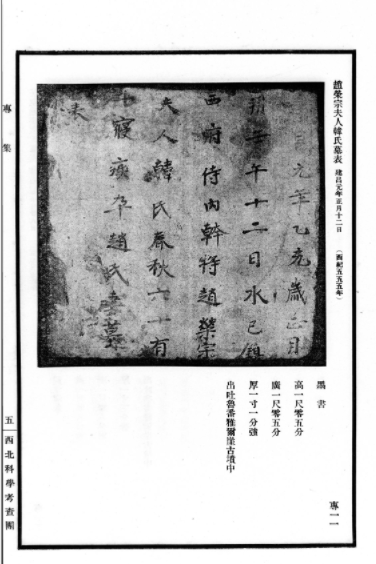 趙榮宗夫人韓氏墓表 建昌元年正月十二日 (西紀五五五年)
昌元年乙亥歲正月
朔壬午十二日水巳鎮
西府侍內幹將趙榮宗
夫人韓氏春秋六十有
寢疾卒趙氏妻墓
表
墨書
高一尺零五分
廣一尺零五分
厚一寸一分強
出吐魯番雅爾崖古墳中
專一一
專集
五 西北科學考查團